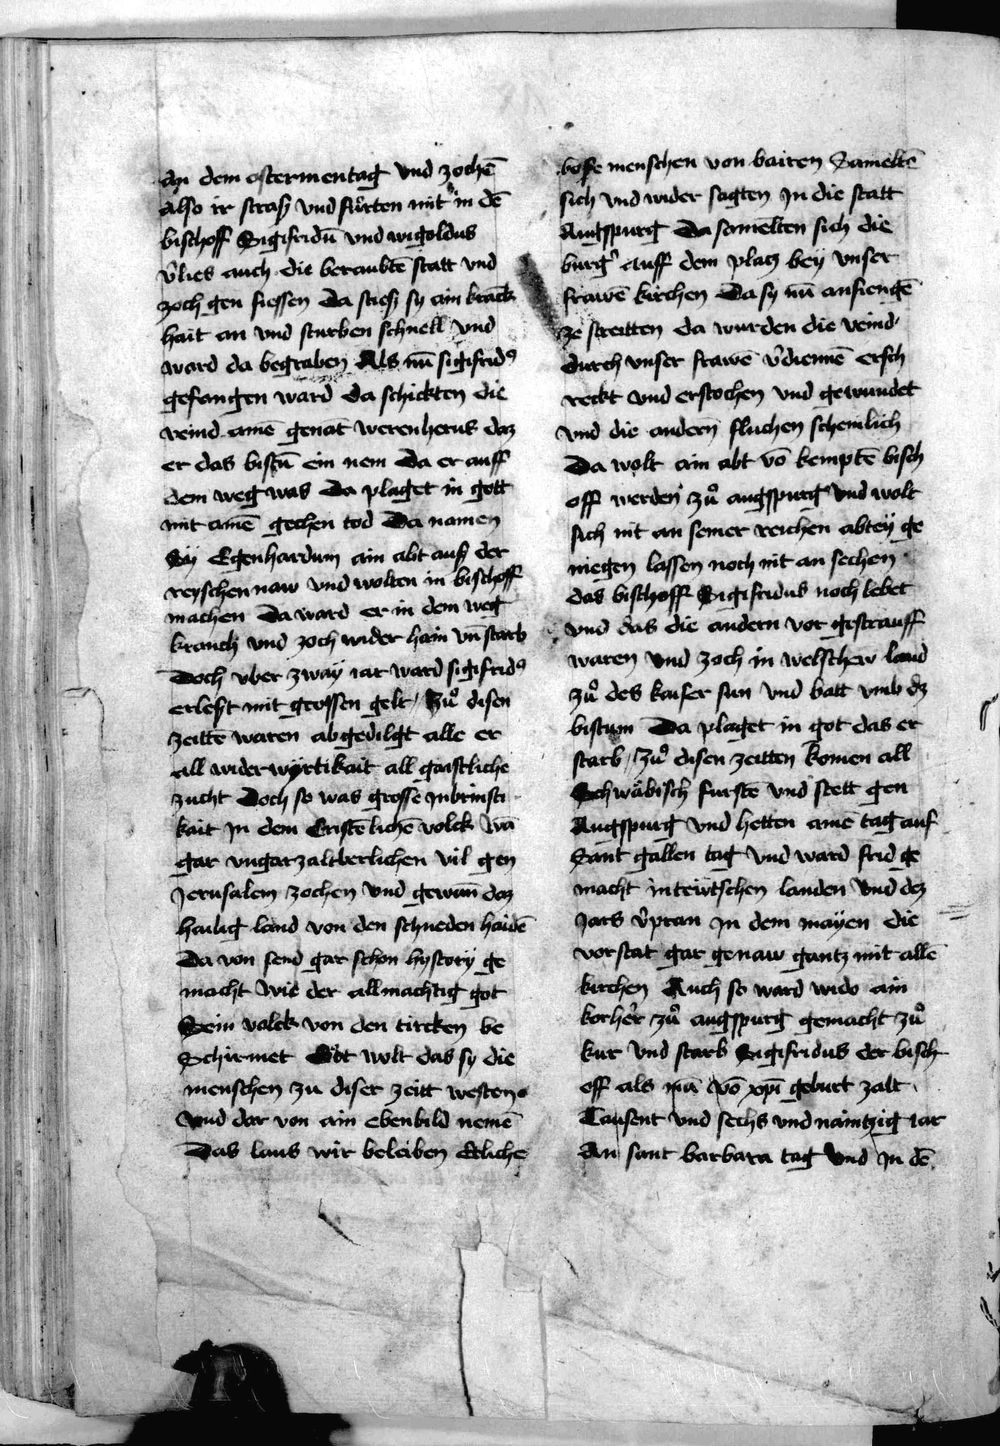 An dem ostermentag vnd zochē
also ir straß vnd fu̍rten mit in dē
bischoff Sigifridū vnd wigoldus
v̓lies auch die beraubtē statt vnd
zoch gen fiessen Da stieß sy ain kranck
hait an vnd sturben schnell vnd
ward da begraben Als nū sigifridꝰ
gefangen ward da schickten die
veind ainē genāt werenherus daz
er das bistū ein nem Da er auff
dem weg was Da plaget in gott
mit ainē gechen tod Da namen
Sÿ Egenhardum ain abt auß der
reyschen naw vnd wolten in bischoff
machen Da ward er in dem weg
kranck vnd zoch wider hain vn̄ starb
Doch vber zway iar ward sigifridꝰ
erlest mit grossen gelt / Zuͦ disen
zeitte waren abgedilgt alle er
all widerwertikait all gaistliche
zucht Doch so was grosse inbrinsti
kait in dem Cristēlichē volck wā
gar vngarzaltberlichen vil gen
Jerusalem zochen vnd gewun̄ daz
hailig land von den schneden haidē
Da von send gar schon hystory ge
macht wie der allmachtig got
Sein volck von den tircken be
Schirmet Got wolt das sy die
menschen zu diser zeitt westen
vnd dar von ain ebenbild nemē
Das laus wir beleiben Etliche
bosse menschen von bairen Sameltē
sich vnd wider sagten In die statt
Augspurg Da samelten sich die
burg̓ auff dem platz bey vnser
frawē kirchen Da sy nū anfiengē
ze streitten da wurden die veind
durch vnser frawē v̓diennē ersch
reckt vnd erstochen vnd gewundet
vnd die andern fluchen schemlich
Da wolt ain abt vō kemptē bisch
off werden zuͦ augspurg vnd wolt
sich nit an seiner reichen abtey ge
niegen lassen noch nit an sechen
das bischoff Sigifridus noch lebet
vnd das die andern vor gestrauff
waren vnd zoch in welschew land
zuͦ des kaiser sun vnd batt vmb dz
bistum Da plaget in got das er
starb / Zuͦ disen zeitten komen all
Schwäbisch furstē vnd stett gen
Augspurg vnd hetten aine tag auf
Sant gallen tag vnd ward frid ge
macht in teẅtschen landen vnd dez
Jars v̓pran in dem mayen die
vorstat gar genaw gantz mit allē
kirchen Auch so ward wido ain
korher̓ zuͦ augspurg gemacht zuͦ
kur vnd starb Sigifridus der bisch
off als mā vō xp̄i geburt zalt
Tausent vnd sechs vnd naintzig iar
An sant barbara tag vnd in dē